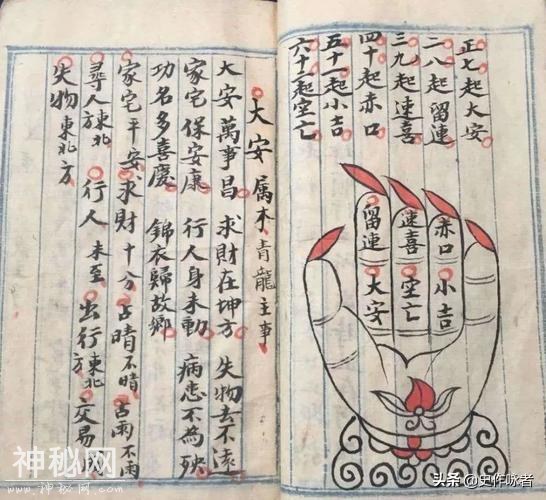 正七起大安
二八起留連
三九起速喜
四十起赤口
五十一起小吉
六十二起空亡
赤口
小吉
速喜
空亡
留連
大安
大安 属木 青龍主事
大安萬事昌 求財在坤方 失物去不遠
家宅保安康 行人身未動 病患不為殃
功名多喜慶 錦衣歸故鄉
家宅平安 求財十分 占晴不晴 占雨不雨
尋人東北 行人未至 出行東北方 交易
失物東北方
神秘网
www.神秘网.com
头条 @史作咏者